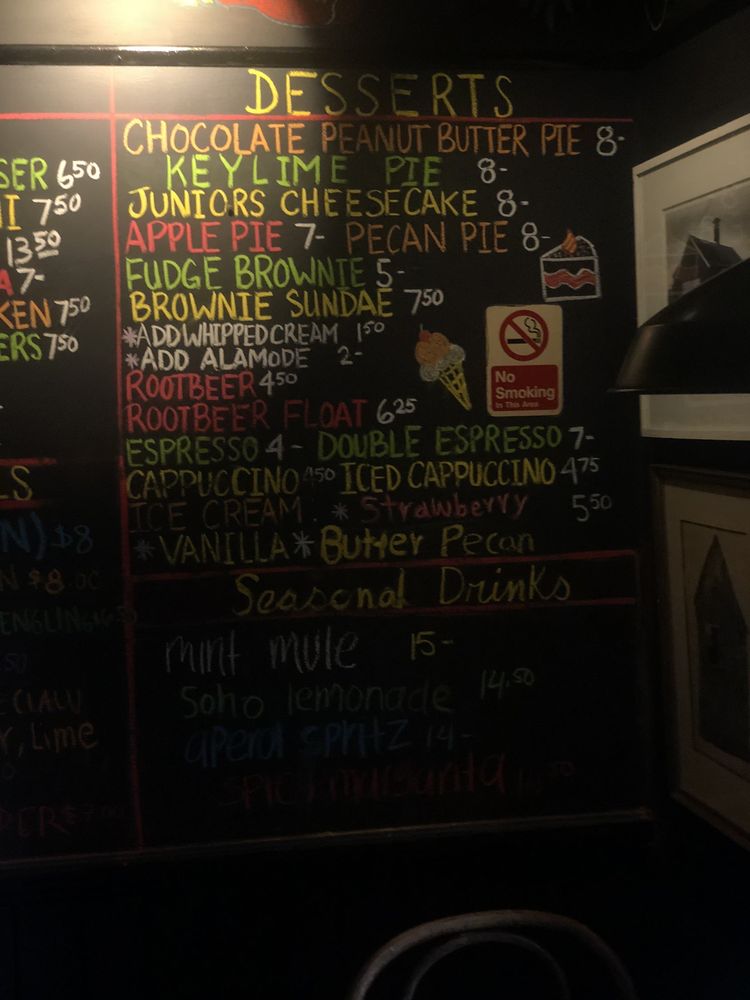 DESSERTS
CHOCOLATE PEANUT BUTTER PIE 8-
KEYLIME PIE 8-
JUNIORS CHEESECAKE 8-
APPLE PIE 7- PECAN PIE 8-
FUDGE BROWNIE 5-
BROWNIE SUNDAE 7.50
*ADD WHIPPED CREAM 1.50
*ADD ALAMODE 2-
ROOTBEER 4.50
ROOTBEER FLOAT 6.25
ESPRESSO 4- DOUBLE ESPRESSO 7-
CAPPUCCINO 4.50 ICED CAPPUCCINO 4.75
ICE CREAM * Strawberry 5.50
*VANILLA *Butter Pecan
No
Smoking
In This Area
Seasonal Drinks
mint mule 15-
Soho lemonade 14.50
aperol spritz 14-
spicy margarita
SER 6.50
I 7.50
13.50
A 7-
KEN 7.50
ERS 7.50
LS
N) $8
N $8.00
ENGLING
ECIALU
r, Lime
DER $